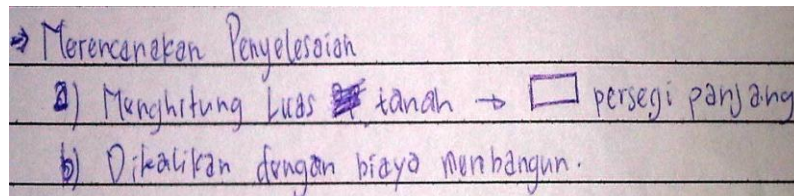 → Merencanakan Penyelesaian
a) Menghitung Luas tanah → persegi panjang
b) Dikalikan dengan biaya membangun.